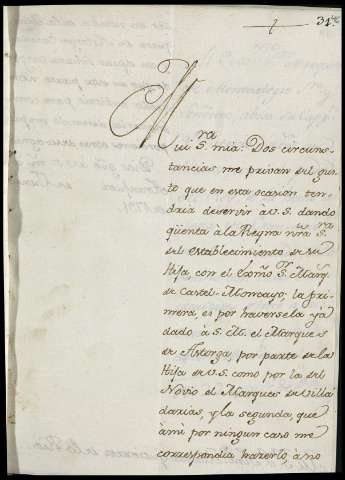 31
Mui S.ra mia: Dos circuns-
tancias me privan del gus-
to que en esta ocasion ten-
dria de servir à V.S. dando
qüenta à la Reyna nr̃a S.ra
del establecimiento de su
Hija, con el Exmõ S.r Marq.s
de Castel-Moncayo; la pri-
mera, es por haversela ya
dado à S.M. el Marques
de Astorga, por parte de la
Hija de V.S. como por la del
Novio el Marques de Villa-
darias, y la segunda, que
à mi por ningun caso me
correspondia hazerlo, à no